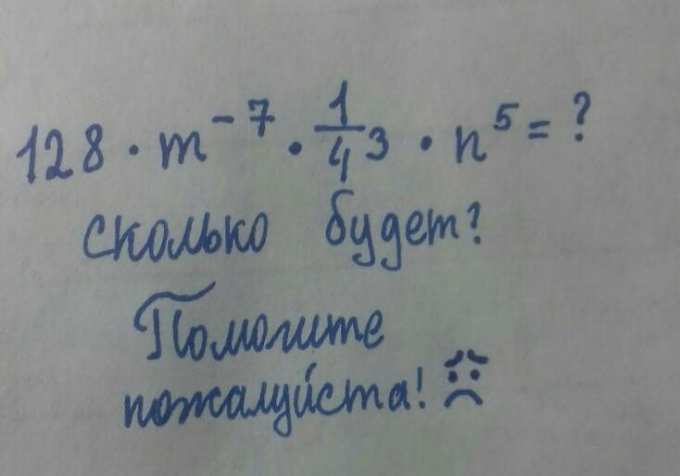 128 · m⁻⁷ · 1/4³ · n⁵ = ?
сколько будет?
Помогите
пожалуйста! :(